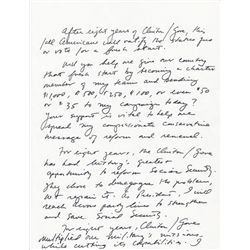 After eight years of Clinton/Gore, this
fall Americans will not fly the status quo
or vote for a fresh start.
Will you help me give our country
that fresh start by becoming a charter
member of my team and sending
$1,000, $500, $250, $100, or even $50
or $35 to my campaign today?
Your support is vital to help me
spread my compassionate conservative
message of reform and renewal.
For eight years, the Clinton/Gore
has had history's greatest
opportunity to reform Social Security.
They chose to demagogue the problem,
not repair it. As President, I will
reach across party lines to strengthen
and save Social Security.
For eight years, Clinton/Gore
multiplied our military's missions
while cutting its capabilities. I